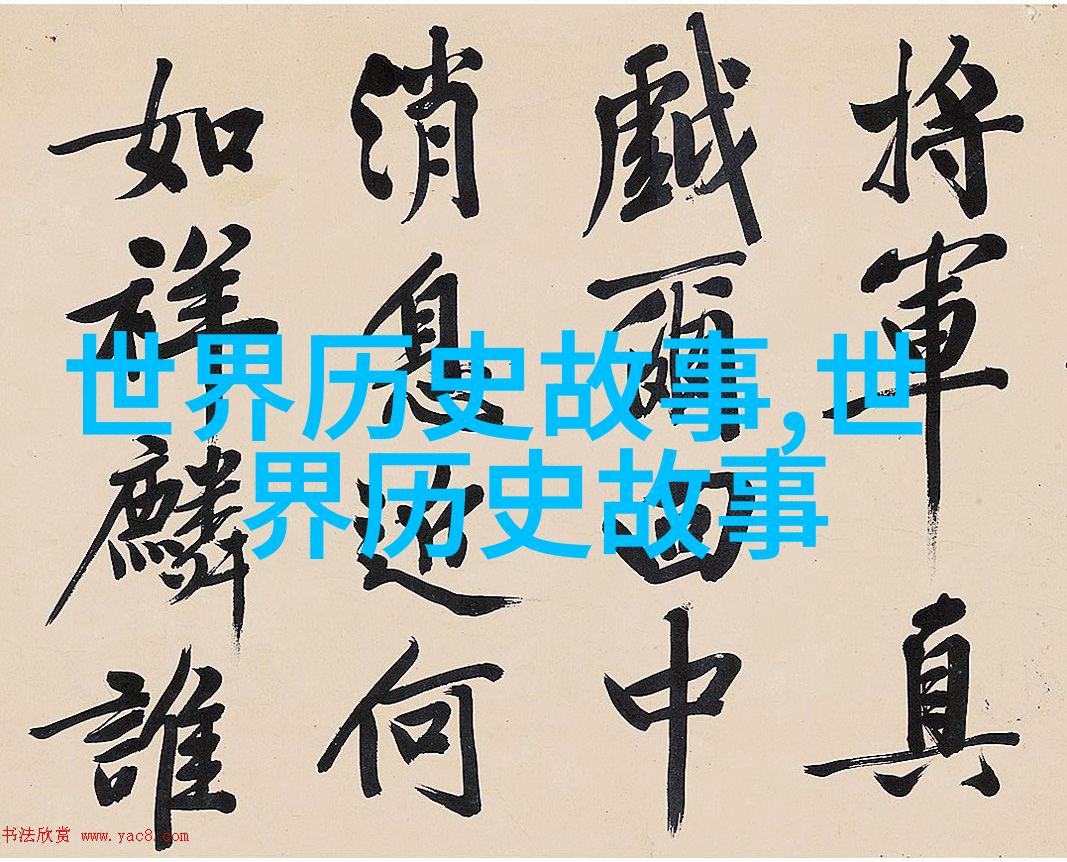 將軍真
戲爾中
消息何
如祥麟誰
世界历史故事,世
界历史故事
书法欣赏 www.yac8.com